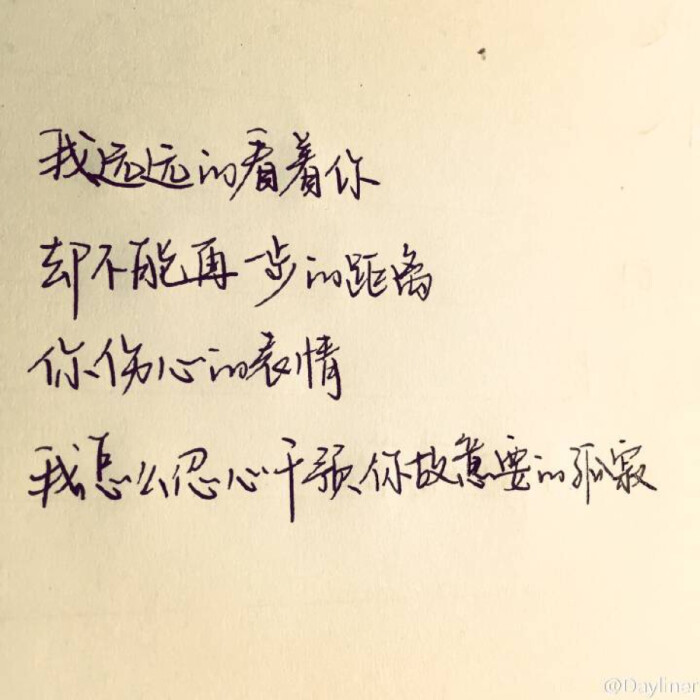 我远远的看着你
却不能再一步的距离
你伤心的表情
我怎么忍心干预你故意要的孤寂
@Daylinar